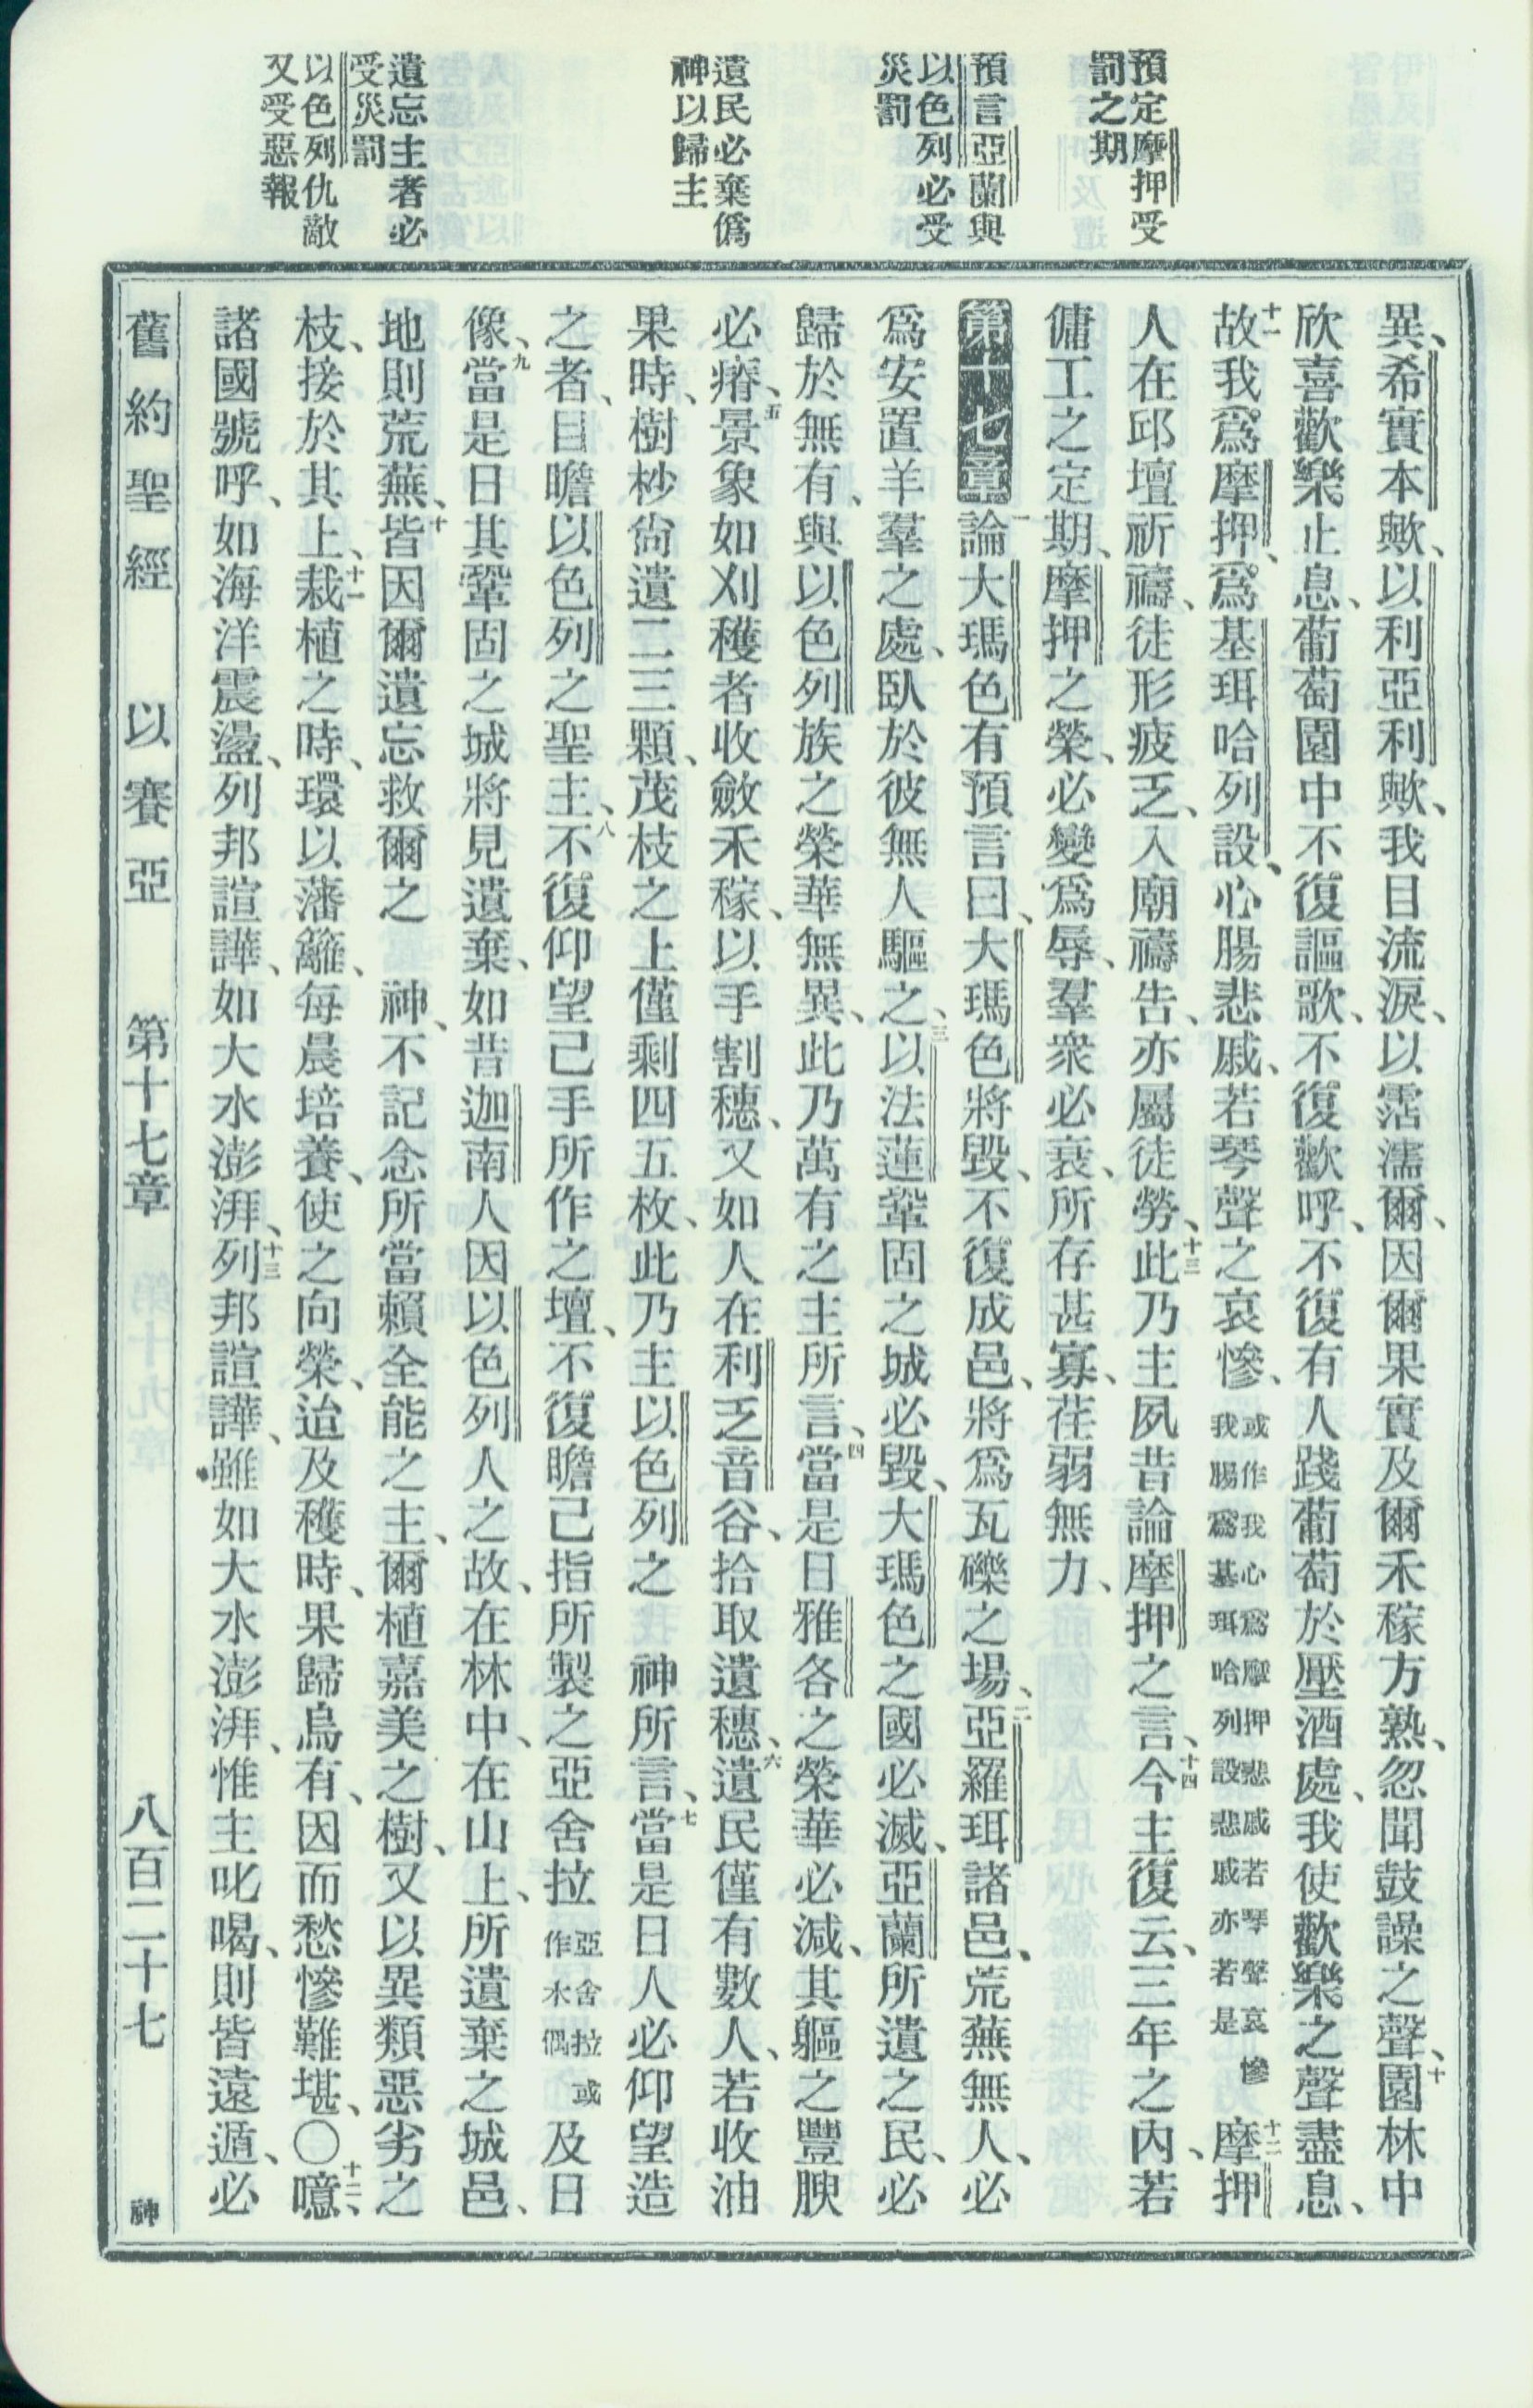 預定摩押受
罰之期
預言亞蘭與
以色列必受
災罰
遺民必棄僞
神以歸主
遺忘主者必
受災罰
以色列仇敵
又受惡報
異、希實本歟、以利亞利歟、我目流淚、以霑濡爾、因爾果實及爾禾稼方熟、忽聞鼓譟之聲、十園林中
欣喜歡樂止息、葡萄園中不復謳歌、不復歡呼、不復有人踐葡萄於壓酒處、我使歡樂之聲盡息、
十一故我爲摩押、爲基珥哈列設、心腸悲戚、若琴聲之哀慘、或作我心爲摩押悲戚若琴聲哀慘我腸爲基珥哈列設悲戚亦若是十二摩押
人在邱壇祈禱、徒形疲乏、入廟禱告、亦屬徒勞、十三此乃主夙昔論摩押之言、十四今主復云、三年之內、若
傭工之定期、摩押之榮、必變爲辱、羣衆必衰、所存甚寡、荏弱無力、
第十七章一論大瑪色有預言曰、大瑪色將毀、不復成邑、將爲瓦礫之場、二亞羅珥諸邑、荒蕪無人、必
爲安置羊羣之處、臥於彼無人驅之、三以法蓮鞏固之城必毀、大瑪色之國必滅、亞蘭所遺之民、必
歸於無有、與以色列族之榮華無異、此乃萬有之主所言、四當是日雅各之榮華必減、其軀之豐腴
必瘠、五景象如刈穫者收斂禾稼、以手割穗、又如人在利乏音谷、拾取遺穗、六遺民僅有數人、若收油
果時、樹杪尙遺二三顆、茂枝之上僅剩四五枚、此乃主以色列之　神所言、七當是日人必仰望造
之者、目瞻以色列之聖主、八不復仰望己手所作之壇、不復瞻己指所製之亞舍拉亞舍拉或作木偶及日
像、九當是日其鞏固之城將見遺棄、如昔迦南人因以色列人之故、在林中、在山上、所遺棄之城邑、
地則荒蕪、十皆因爾遺忘救爾之　神、不記念所當賴全能之主、爾植嘉美之樹、又以異類惡劣之
枝、接於其上、十一栽植之時、環以藩籬、每晨培養、使之向榮、迨及穫時、果歸烏有、因而愁慘難堪、〇十二噫、
諸國號呼、如海洋震盪、列邦諠譁、如大水澎湃、十三列邦諠譁、雖如大水澎湃、惟主叱喝、則皆遠遁、必
舊約聖經　以賽亞　第十七章　八百二十七　神